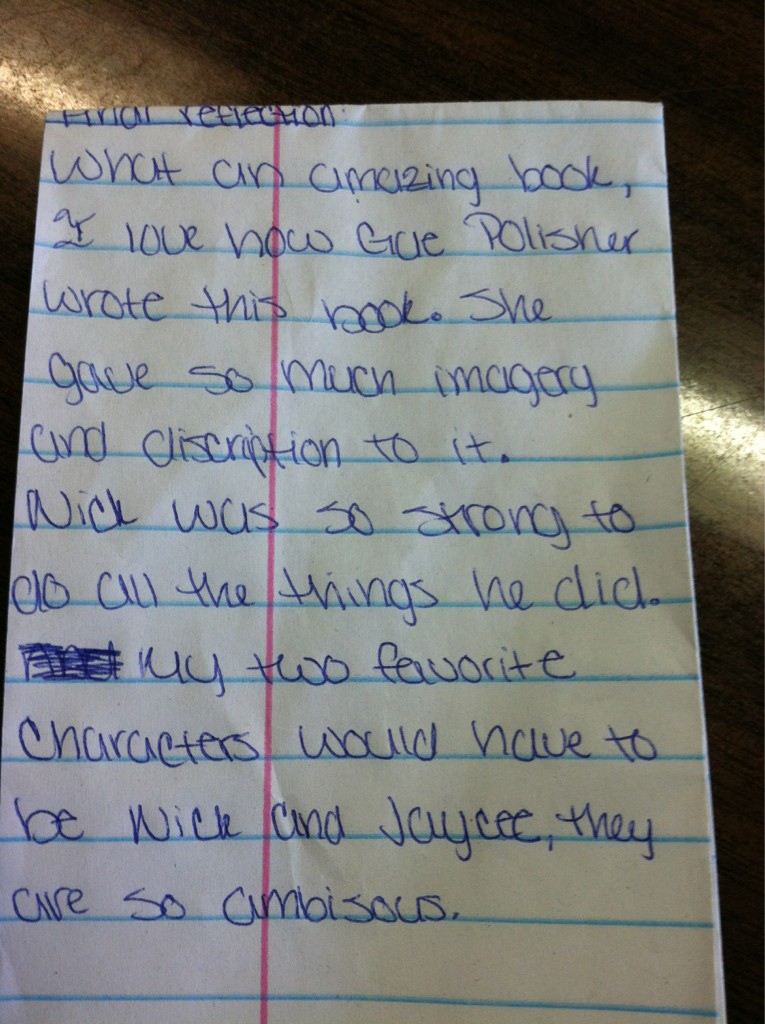 Final reflection:
What an amazing book,
I love how Gae Polisher
wrote this book. She
gave so much imagery
and discription to it.
Nick was so strong to
do all the things he did.
My two favorite
characters would have to
be Nick and Jaycee, they
are so ambisous.